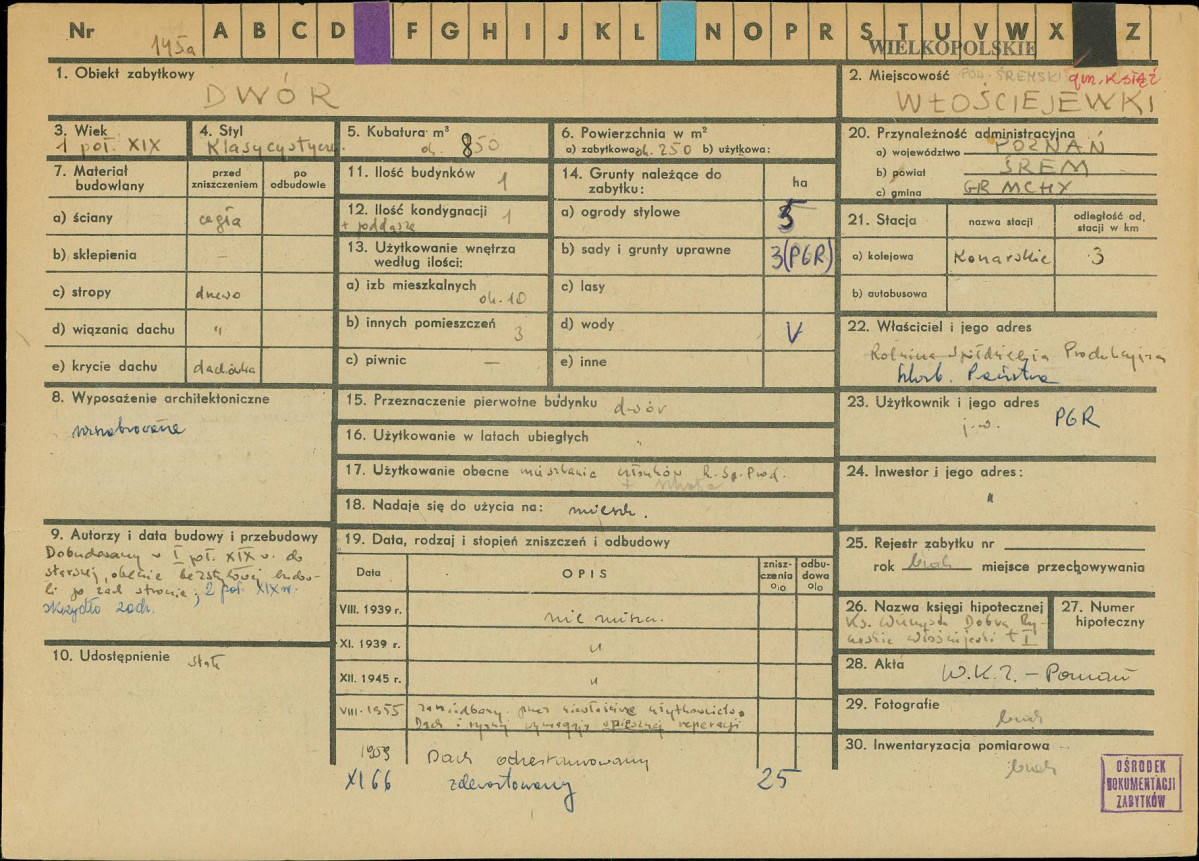 Nr 145a A B C D F G H I J K L N O P R S T U V W X Z
WIELKOPOLSKIE
1. Obiekt zabytkowy
DWÓR
2. Miejscowość POW. ŚREMSKI gm. KSIĄŻ
WŁOŚCIEJEWKI
3. Wiek
1 poł. XIX
4. Styl
Klasycystyczn.
5. Kubatura m³
ok. 850
6. Powierzchnia w m²
a) zabytkowa ok. 250 b) użytkowa:
20. Przynależność administracyjna
a) województwo POZNAŃ
b) powiat ŚREM
c) gmina GR MCHX
7. Materiał budowlany
przed zniszczeniem
po odbudowie
a) ściany cegła
b) sklepienia –
c) stropy drzewo
d) wiązania dachu "
e) krycie dachu dachówka
11. Ilość budynków 1
12. Ilość kondygnacji 1
+ poddasze
13. Użytkowanie wnętrza
według ilości:
a) izb mieszkalnych ok. 10
b) innych pomieszczeń 3
c) piwnic —
14. Grunty należące do
zabytku:
ha
a) ogrody stylowe 5
b) sady i grunty uprawne 3 (PGR)
c) lasy
d) wody V
e) inne
21. Stacja
nazwa stacji
odległość od stacji w km
a) kolejowa Konarskie 3
b) autobusowa
22. Właściciel i jego adres
Rolnicza Spółdzielnia Produkcyjna
Skarb. Państwa
8. Wyposażenie architektoniczne
15. Przeznaczenie pierwotne budynku dwór
16. Użytkowanie w latach ubiegłych "
17. Użytkowanie obecne mieszkania członków R. Sp. Prod.
+ szkoła
18. Nadaje się do użycia na: mieszk.
23. Użytkownik i jego adres
j.w. PGR
24. Inwestor i jego adres:
"
9. Autorzy i data budowy i przebudowy
Dobudowany w I poł. XIX w. do
starszej, obecnie bezstylowej budow-
li po zach stronie; 2 poł. XIX w.
skrzydło zach.
19. Data, rodzaj i stopień zniszczeń i odbudowy
Data
OPIS
zniszczenia %
odbudowa %
VIII. 1939 r. nie niszcz.
XI. 1939 r. "
XII. 1945 r. "
VIII - 1955 zaniedbany przez niewłaściwe użytkowanie.
Dach i rynny wymagają spiesznej reperacji
1959 Dach odrestaurowany
XI 66 zdewastowany 25
10. Udostępnienie stałe
25. Rejestr zabytku nr
rok brak miejsce przechowywania
26. Nazwa księgi hipotecznej
Ks. Wieczysta Dobra Ry-
cerskie Włościejewki t I
27. Numer
hipoteczny
28. Akta W.K.Z. – Poznań
29. Fotografie
brak
30. Inwentaryzacja pomiarowa
brak
OŚRODEK
DOKUMENTACJI
ZABYTKÓW